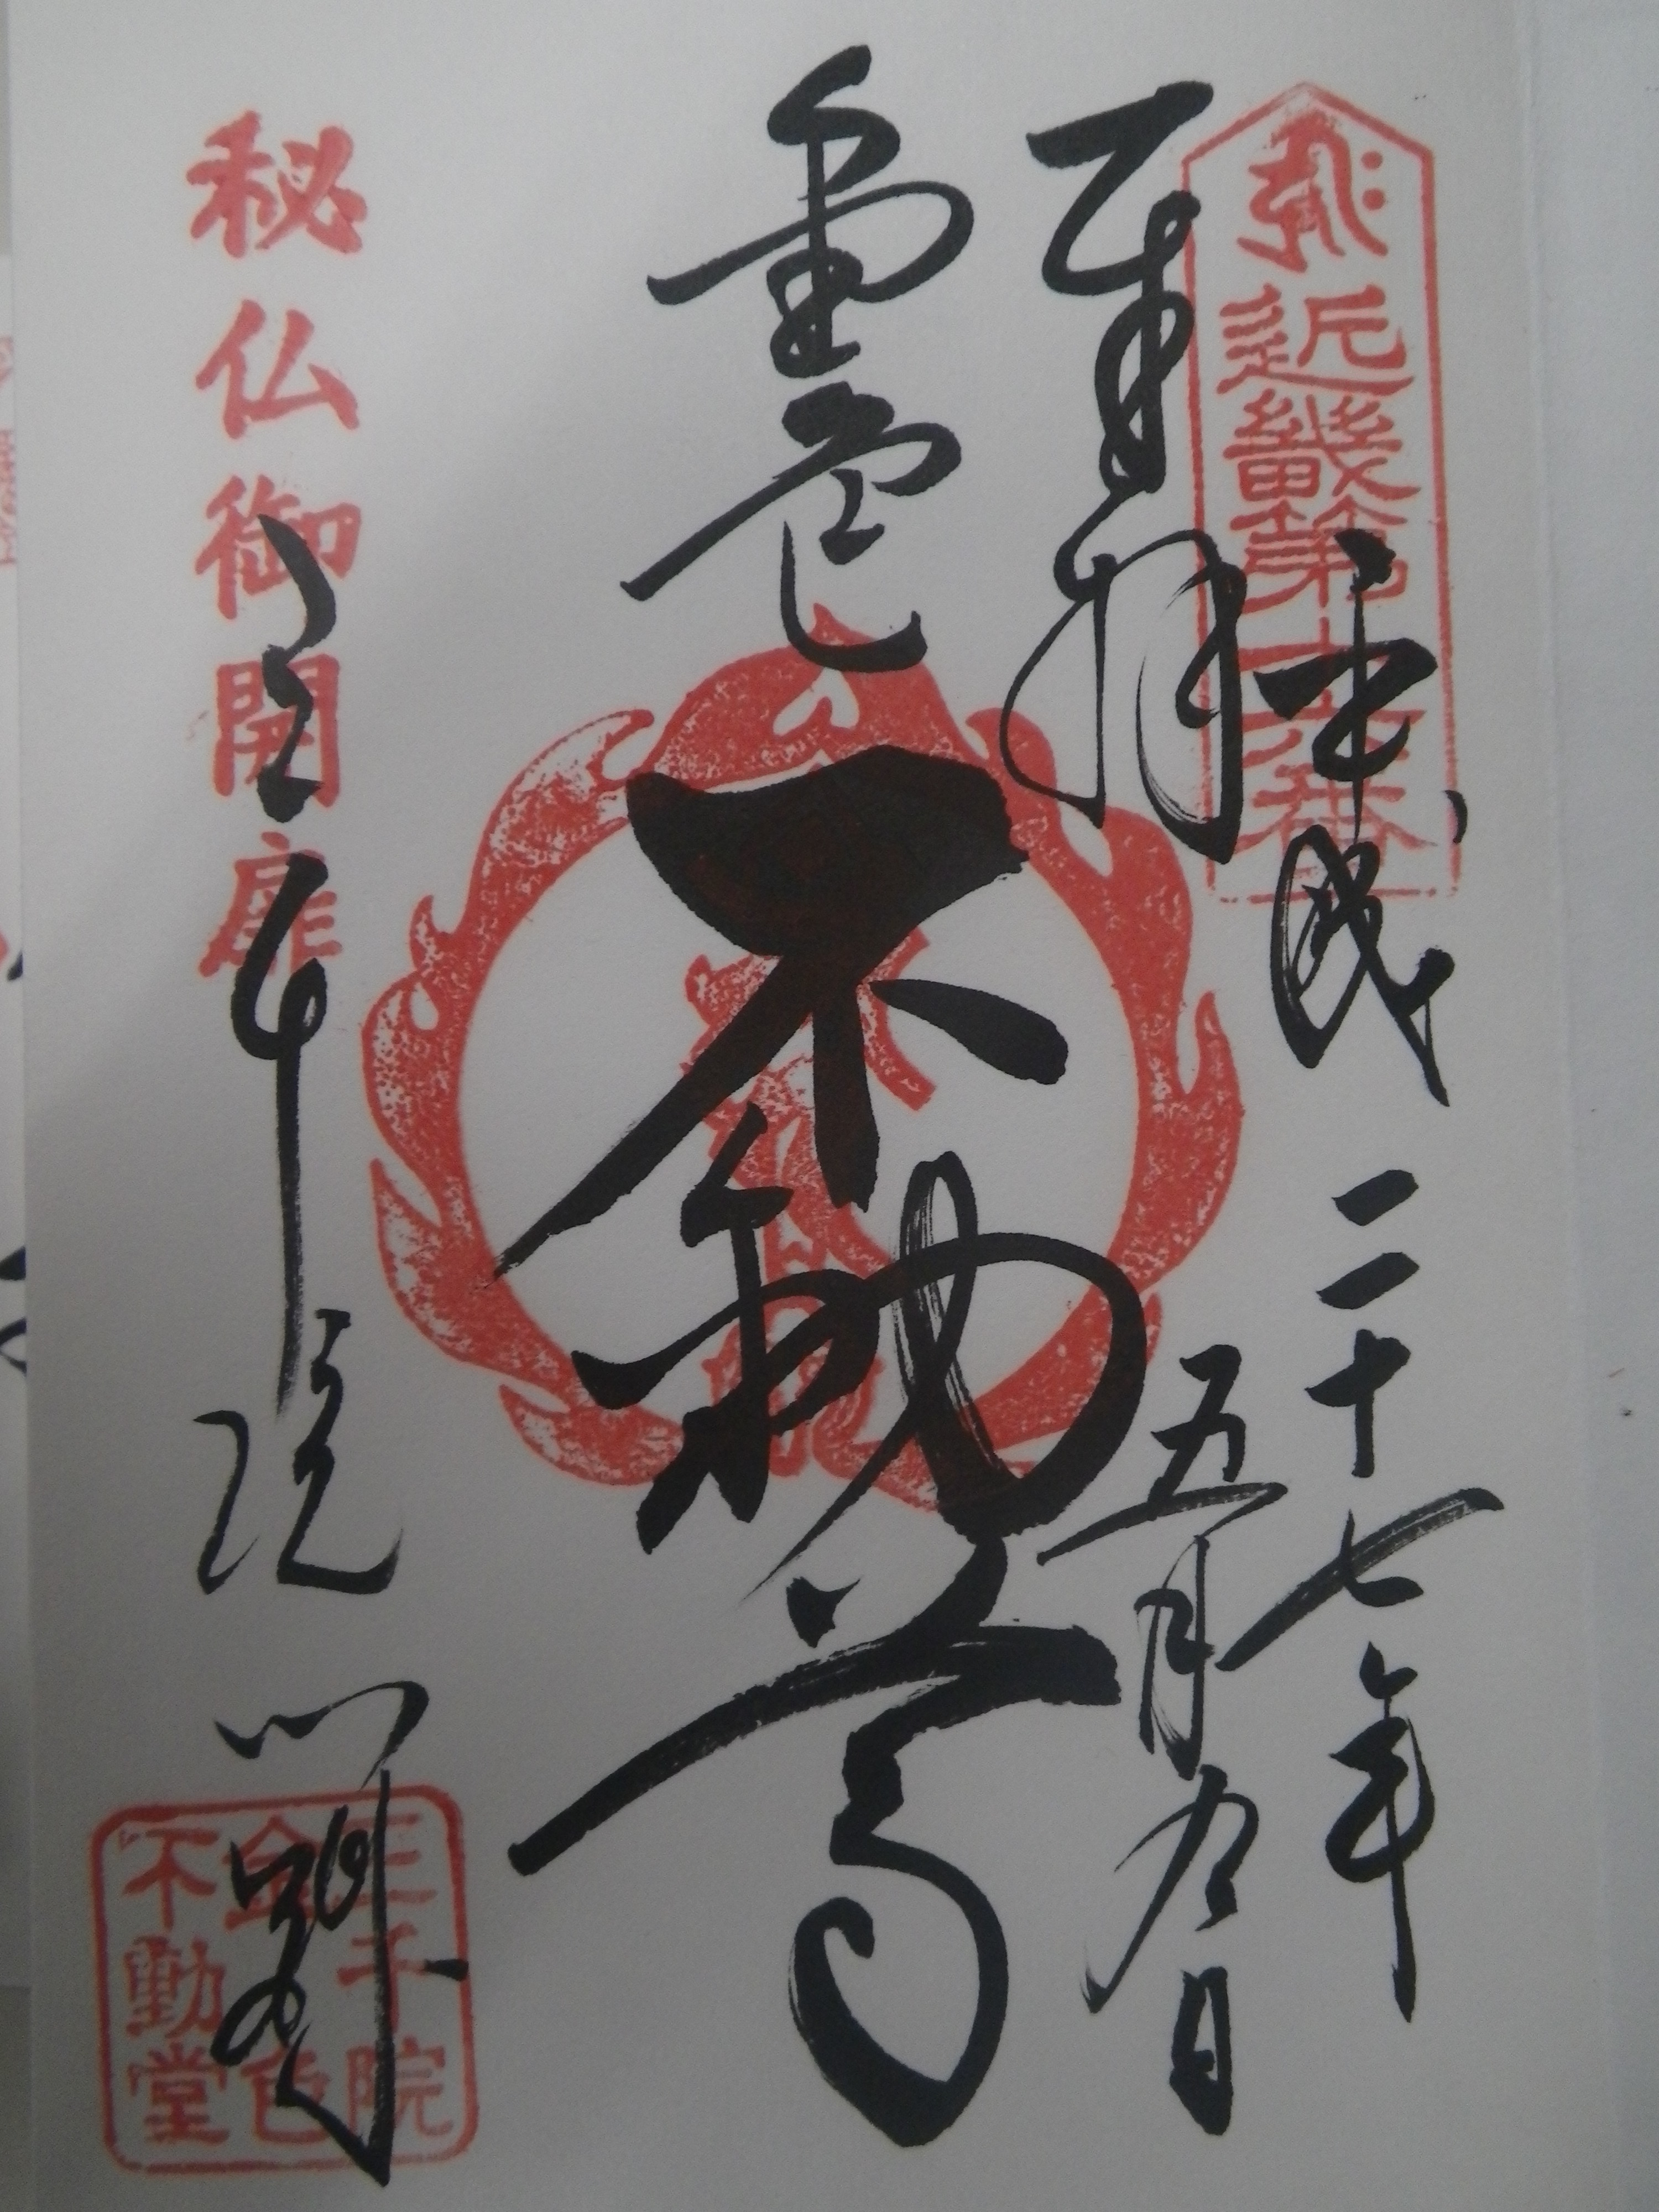 近畿第十六番
奉拝
平成二十七年
五月九日
金色
不動尊
秘仏御開扉
三千院
門跡
三千院
金色
不動堂